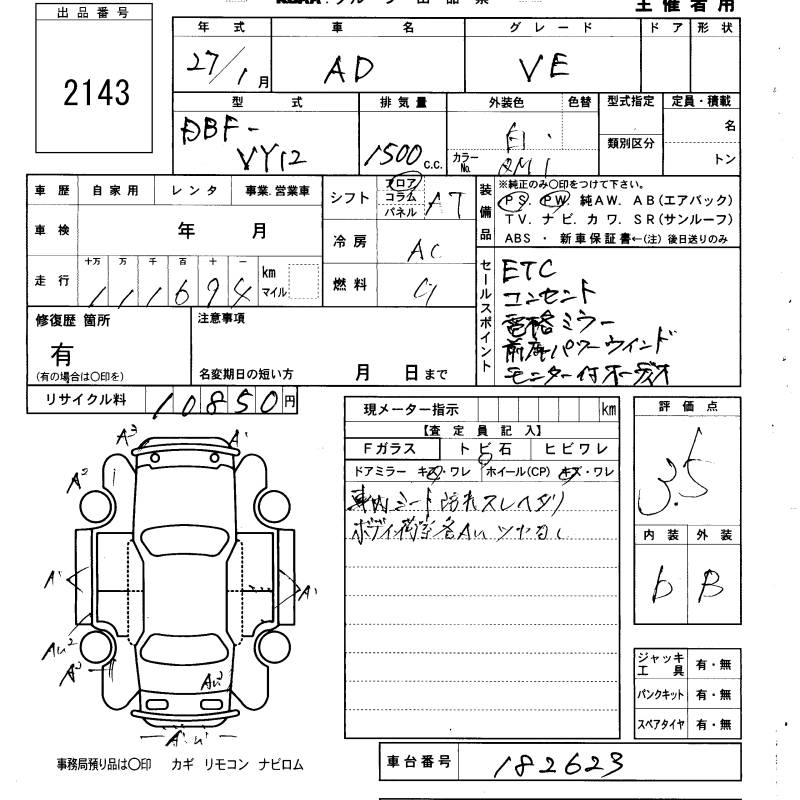 KCAA.グループ 出品票
主催者用
出品番号
2143
年式 車名 グレード ドア 形状
27/1月 AD VE
型式 排気量 外装色 色替 型式指定 定員・積載
DBF-
VY12 1500 c.c. 白 カラーNo. QM1 類別区分 名
トン
車歴 自家用 レンタ 事業.営業車
シフト フロア コラム パネル AT
装備品 ※純正のみ○印をつけて下さい。
PS. PW. 純AW. AB(エアバック)
TV. ナビ. カワ. SR(サンルーフ)
ABS ・ 新車保証書←(注) 後日送りのみ
車検 年 月
冷房 AC
走行 十万 万 千 百 十 一 km マイル
111694
燃料 G
セールスポイント
ETC
コンセント
電格ミラー
前席パワーウインド
モニター付オーディオ
修復歴 箇所
有
(有の場合は○印を)
注意事項
名変期日の短い方 月 日まで
リサイクル料 10850円
現メーター指示 km
【査定員記入】
Fガラス トビ石 ヒビワレ
ドアミラー キズ・ワレ ホイール(CP) キズ・ワレ
車内シート 汚れスレヘタリ
評価点
3.5
内装 外装
b B
A3 A1
A2
A1 A1
AU2
A2
AU2
ジャッキ工具 有・無
パンクキット 有・無
スペアタイヤ 有・無
事務局預り品は○印 カギ リモコン ナビロム
車台番号 182623